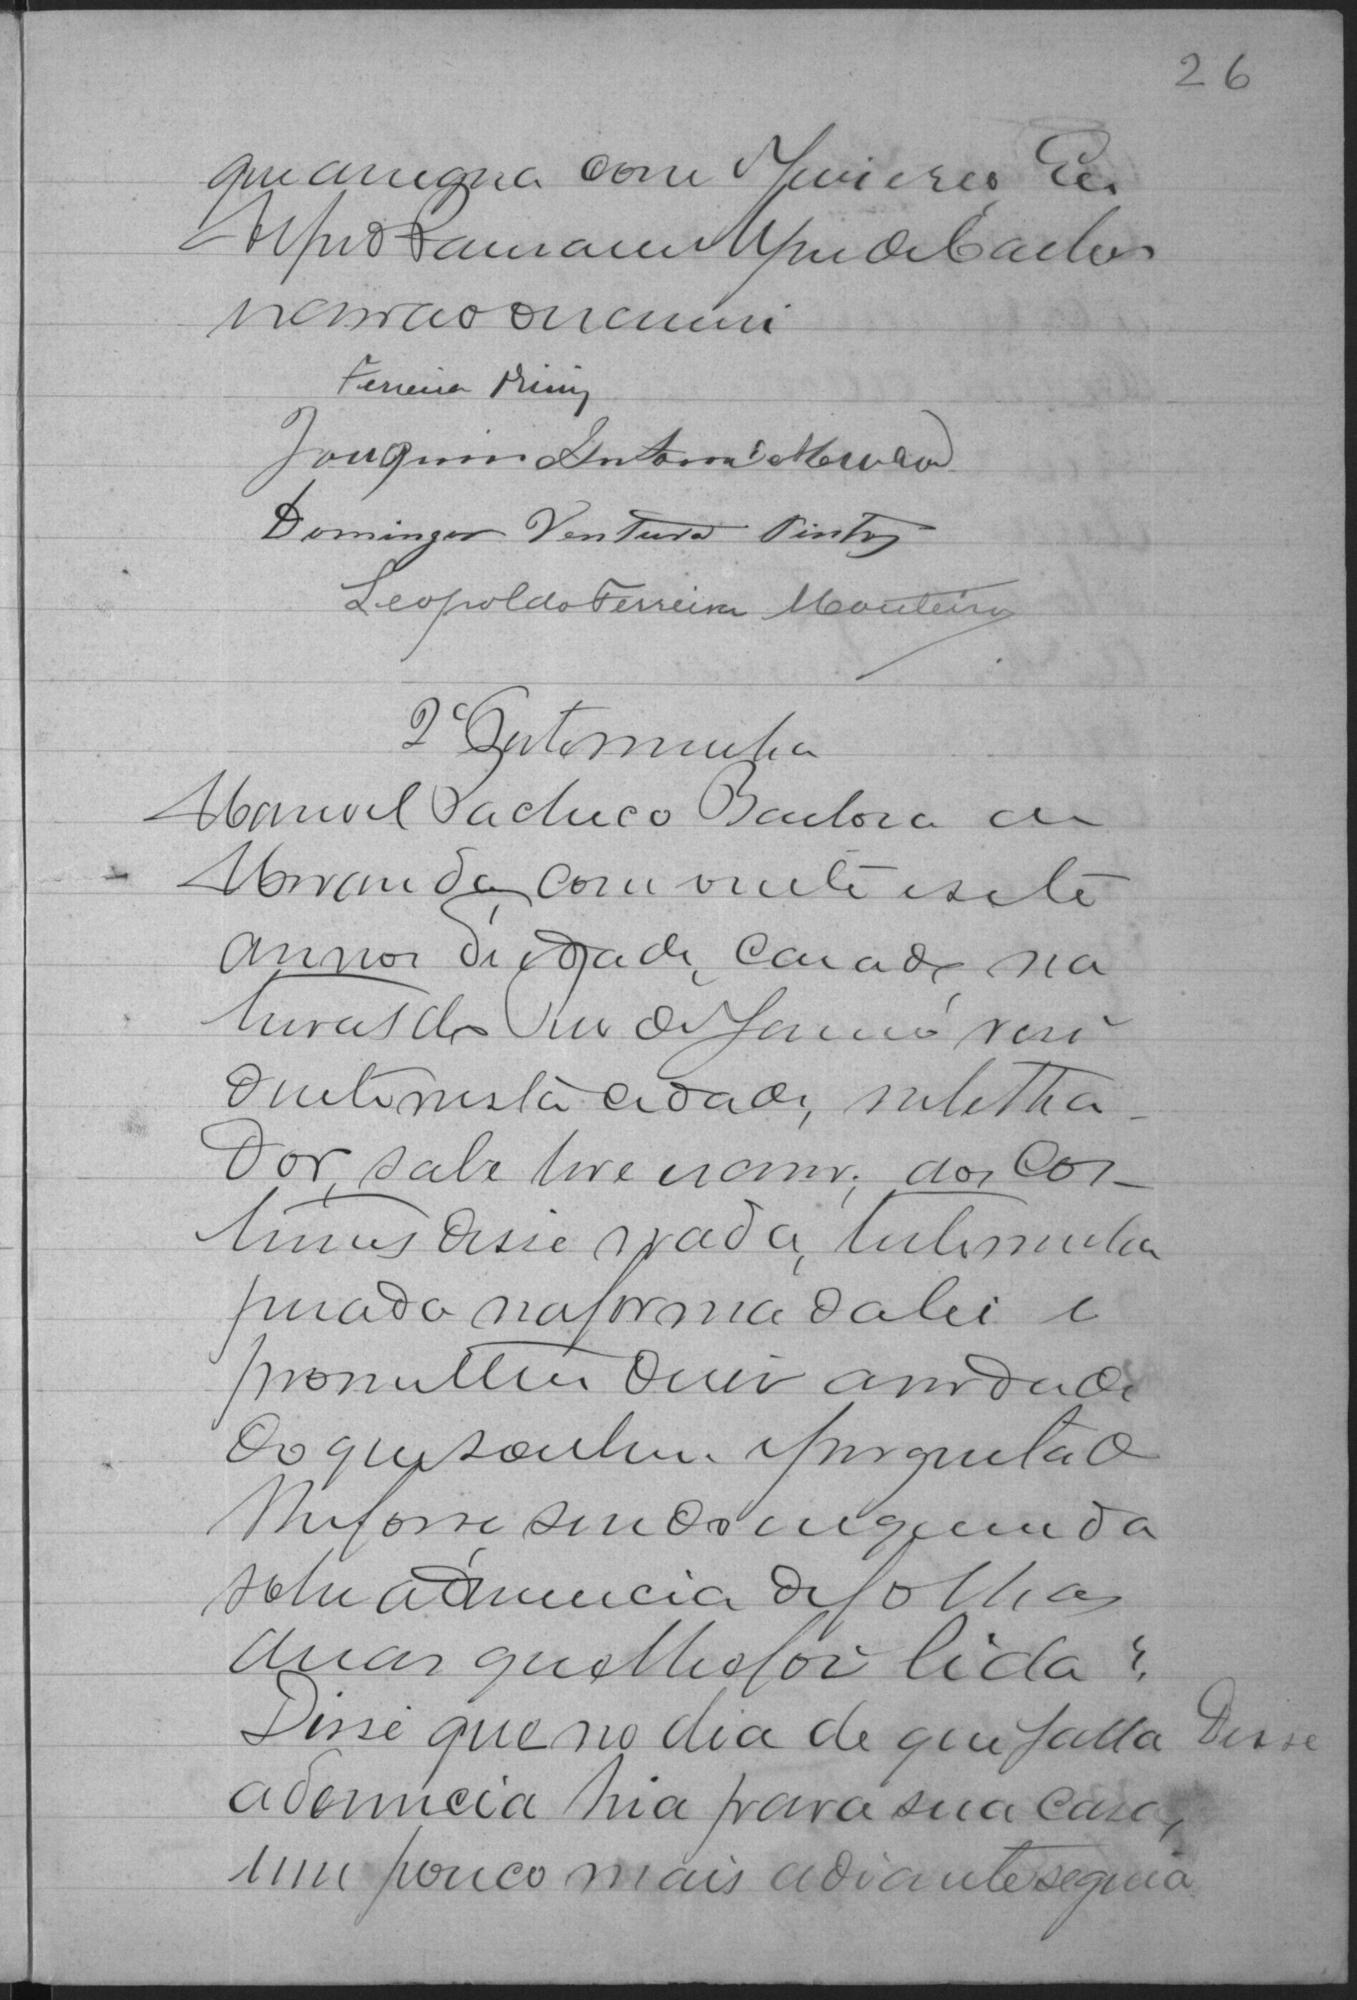 26
que assigna com o Juiz e réo, Eu
Alfredo
escrivão o escrevi
Ferreira Diniz
Joaquim Antonio
Domingos Ventura Pintos
Leopoldo Ferreira Monteiro
2ª Testemunha
Manoel Pacheco Barbosa de
Miranda, com vinte e sete
annos de edade, casado, na
tural do Rio de Janeiro resi
dente nesta cidade,
dor, sabe ler e escrever; aos cos-
tumes disse nada, testemunha
jurada na forma da lei e
prometteu dizer a verdade
do que soubesse e perguntado
lhe fosse sendo inquerida
sobre a denuncia de folhas
duas que lhe foi lida?
Disse que no dia de que falla Disse
a denuncia hia para sua casa,
um pouco mais adiante seguia